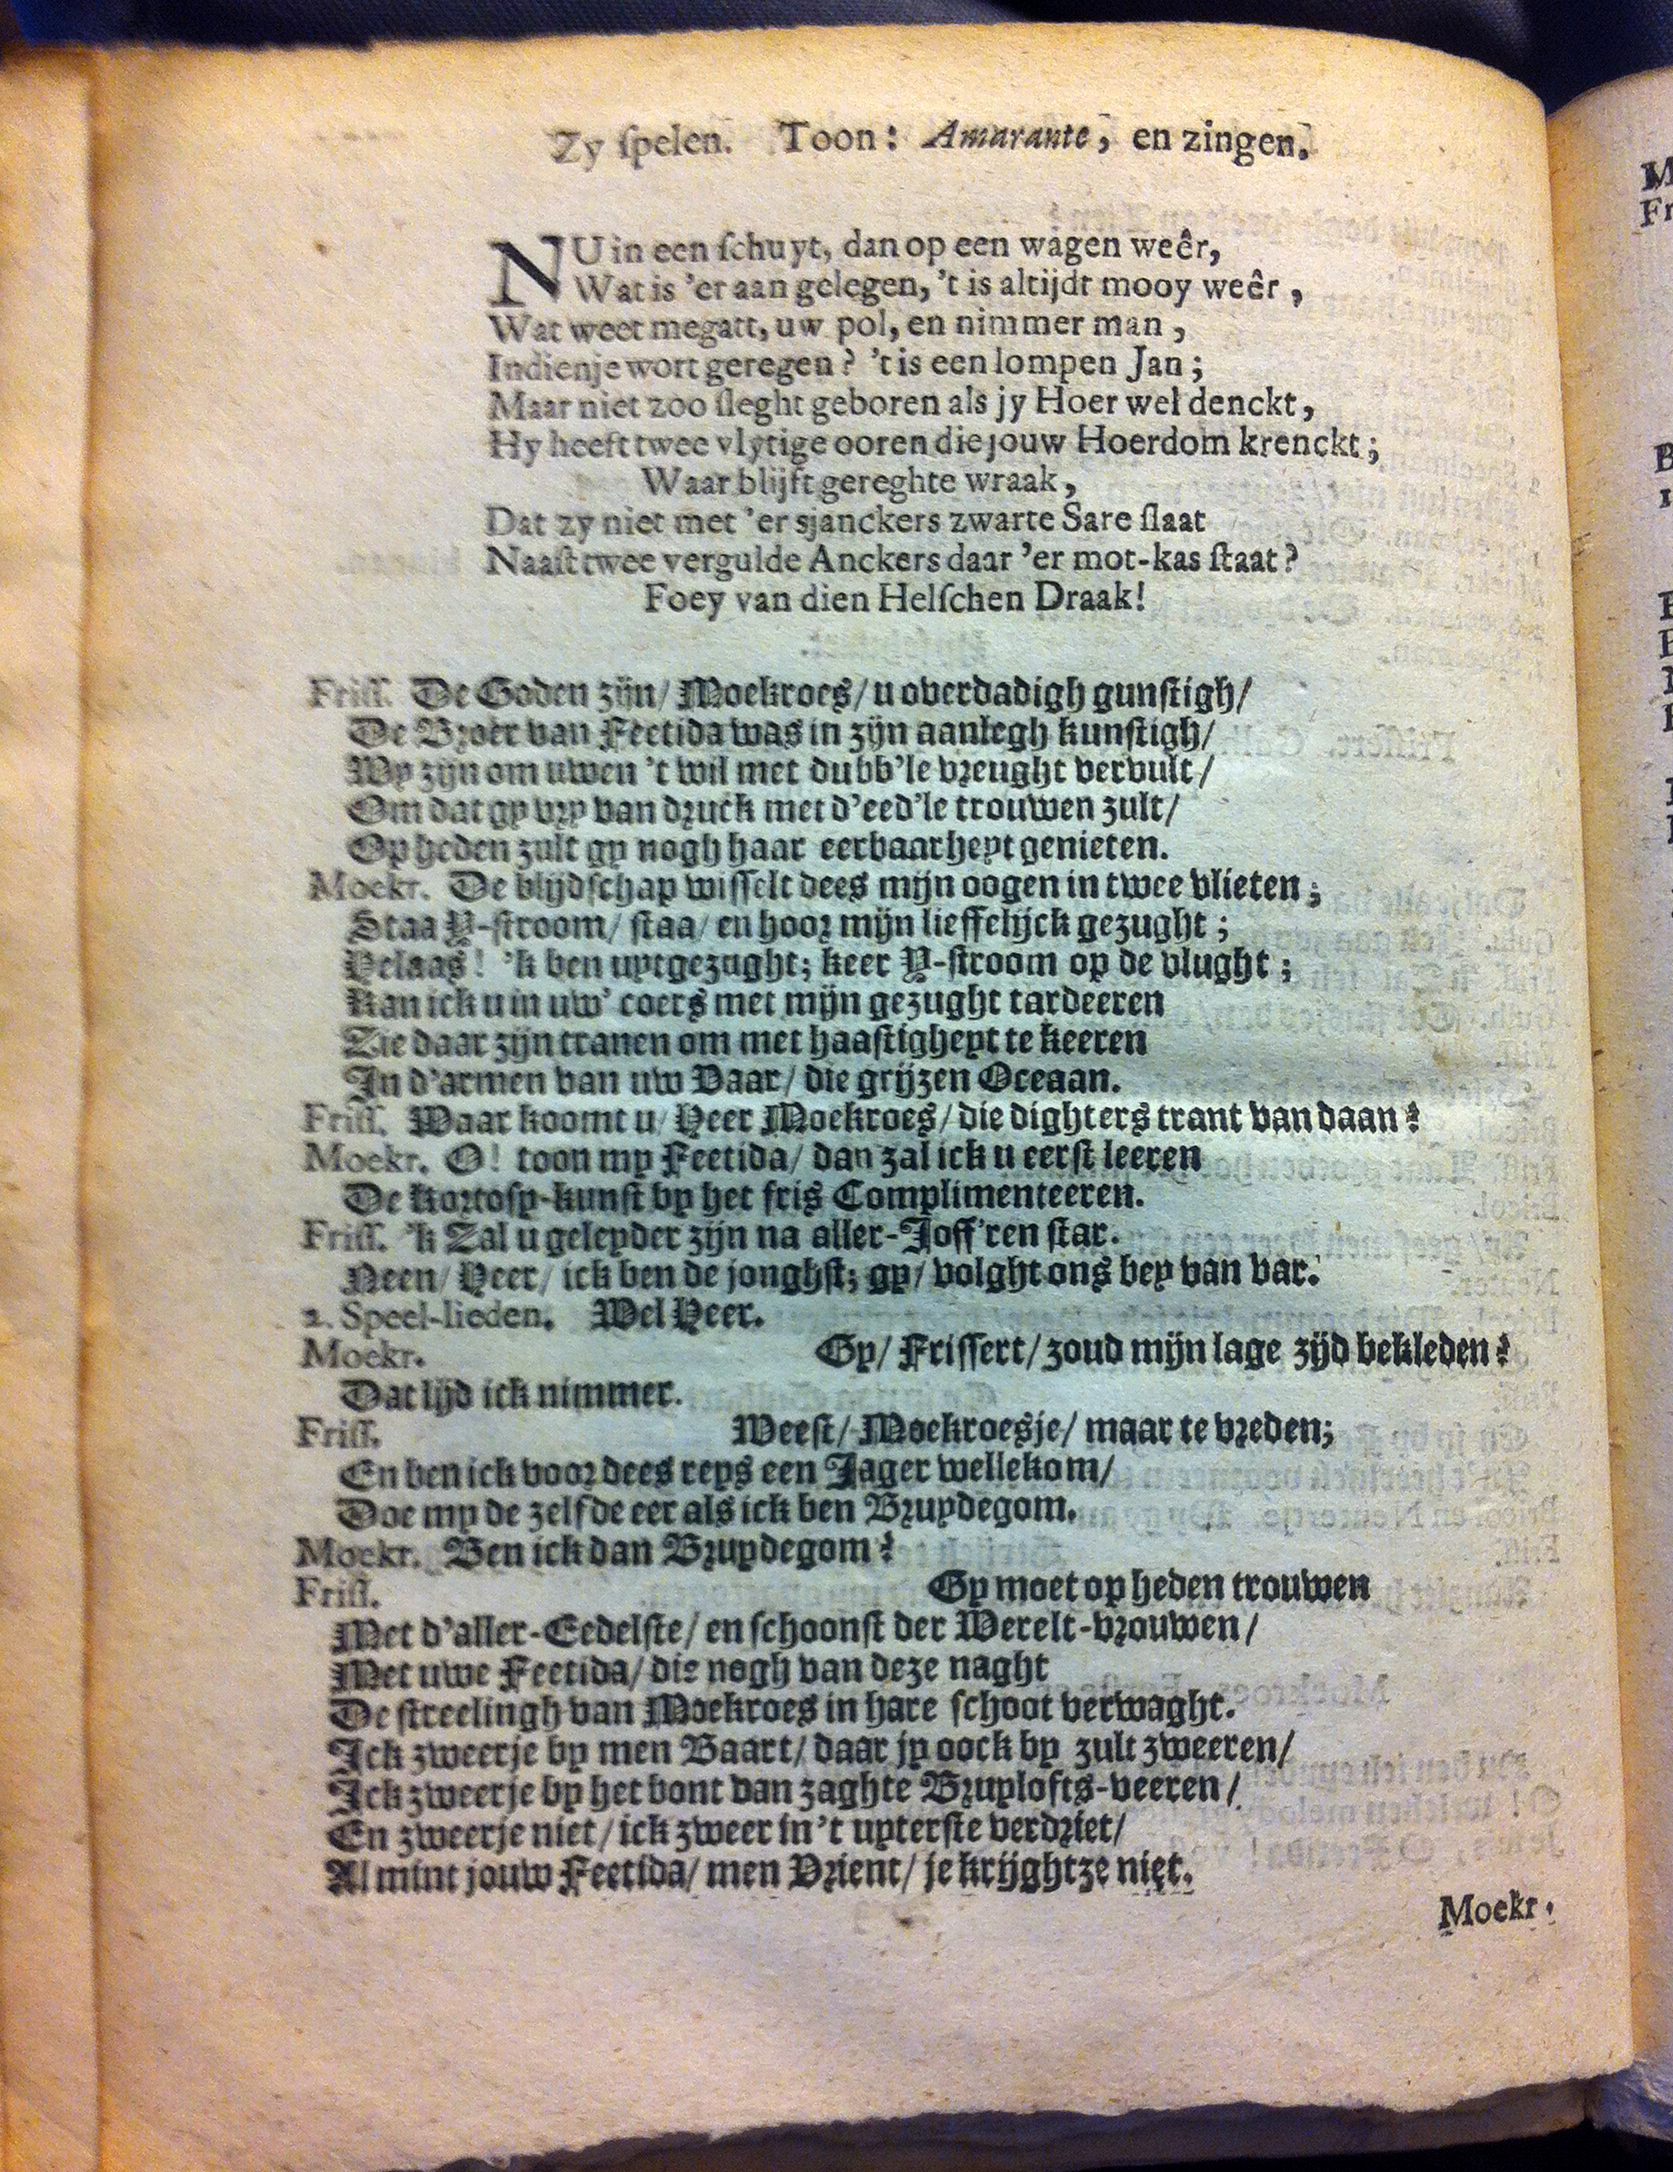 Zy ſpelen. Toon: Amarante, en zingen.
NU in een ſchuyt, dan op een wagen weêr,
Wat is 'er aan gelegen, 't is altijdt mooy weêr,
Wat weet megatt, uw pol, en nimmer man,
Indien je wort geregen? 't is een lompen Jan;
Maar niet zoo ſleght geboren als jy Hoer wel denckt,
Hy heeft twee vlytige ooren die jouw Hoerdom krenckt;
Waar blijft gereghte wraak,
Dat zy niet met 'er sjanckers zwarte Sare ſlaat
Naaſt twee vergulde Anckers daar 'er mot-kas ſtaat?
Foey van dien Helſchen Draak!
Friſſ. De Goden zijn/ Moekroes/ u overdadigh gunſtigh/
De Broer van Feetida was in zijn aanlegh kunſtigh/
Wy zijn om uwen 't wil met dubb'le vreught vervult/
Om dat gy vry van druck met d'eed'le trouwen zult/
Op heden zult gy nogh haar eerbaarheyt genieten.
Moekr. De blijdſchap wiſſelt dees mijn oogen in twee vlieten;
Staa Y-ſtroom/ ſtaa/ en hoor mijn lieffelijck gezught;
Helaas! 'k ben uytgezught; keer Y-ſtroom op de vlught;
Kan ick u in uw' coers met mijn gezught tardeeren
Zie daar zijn tranen om met haaſtigheyt te keeren
In d'armen van uw Vaar/ die grijzen Oceaan.
Friſſ. Waar koomt u/ Heer Moekroes/ die dighters trant van daan?
Moekr. O! toon my Feetida/ dan zal ick u eerſt leeren
De kortosy-kunſt by het fris Complimenteeren.
Friſſ. 'k Zal u geleyder zijn na aller-Joff'ren ſtar.
Neen/ Heer/ ick ben de jonghſt; gy/ volght ons bey van var.
2. Speel-lieden. Wel Heer.
Moekr. Gy/ Friſſert/ zoud mijn lage zijd bekleden?
Dat lijd ick nimmer.
Friſſ. Weeſt/ Moekroesje/ maar te vreden;
En ben ick voor dees reys een Jager wellekom/
Doe my de zelfde eer als ick ben Bruydegom.
Moekr. Ben ick dan Bruydegom?
Friſſ. Gy moet op heden trouwen
Met d'aller-Eedelſte/ en ſchoonſt der Werelt-vrouwen/
Met uwe Feetida/ die nogh van deze naght
De ſtreelingh van Moekroes in hare ſchoot verwaght.
Ick zweerje by men Baart/ daar jy oock by zult zweeren/
Ick zweerje by het bont van zaghte Bruylofts-veeren/
En zweerje niet/ ick zweer in 't uyterſte verdriet/
Al mint jouw Feetida/ men Vrient/ je krijghtze niet.
Moekr.
M
Fr
B